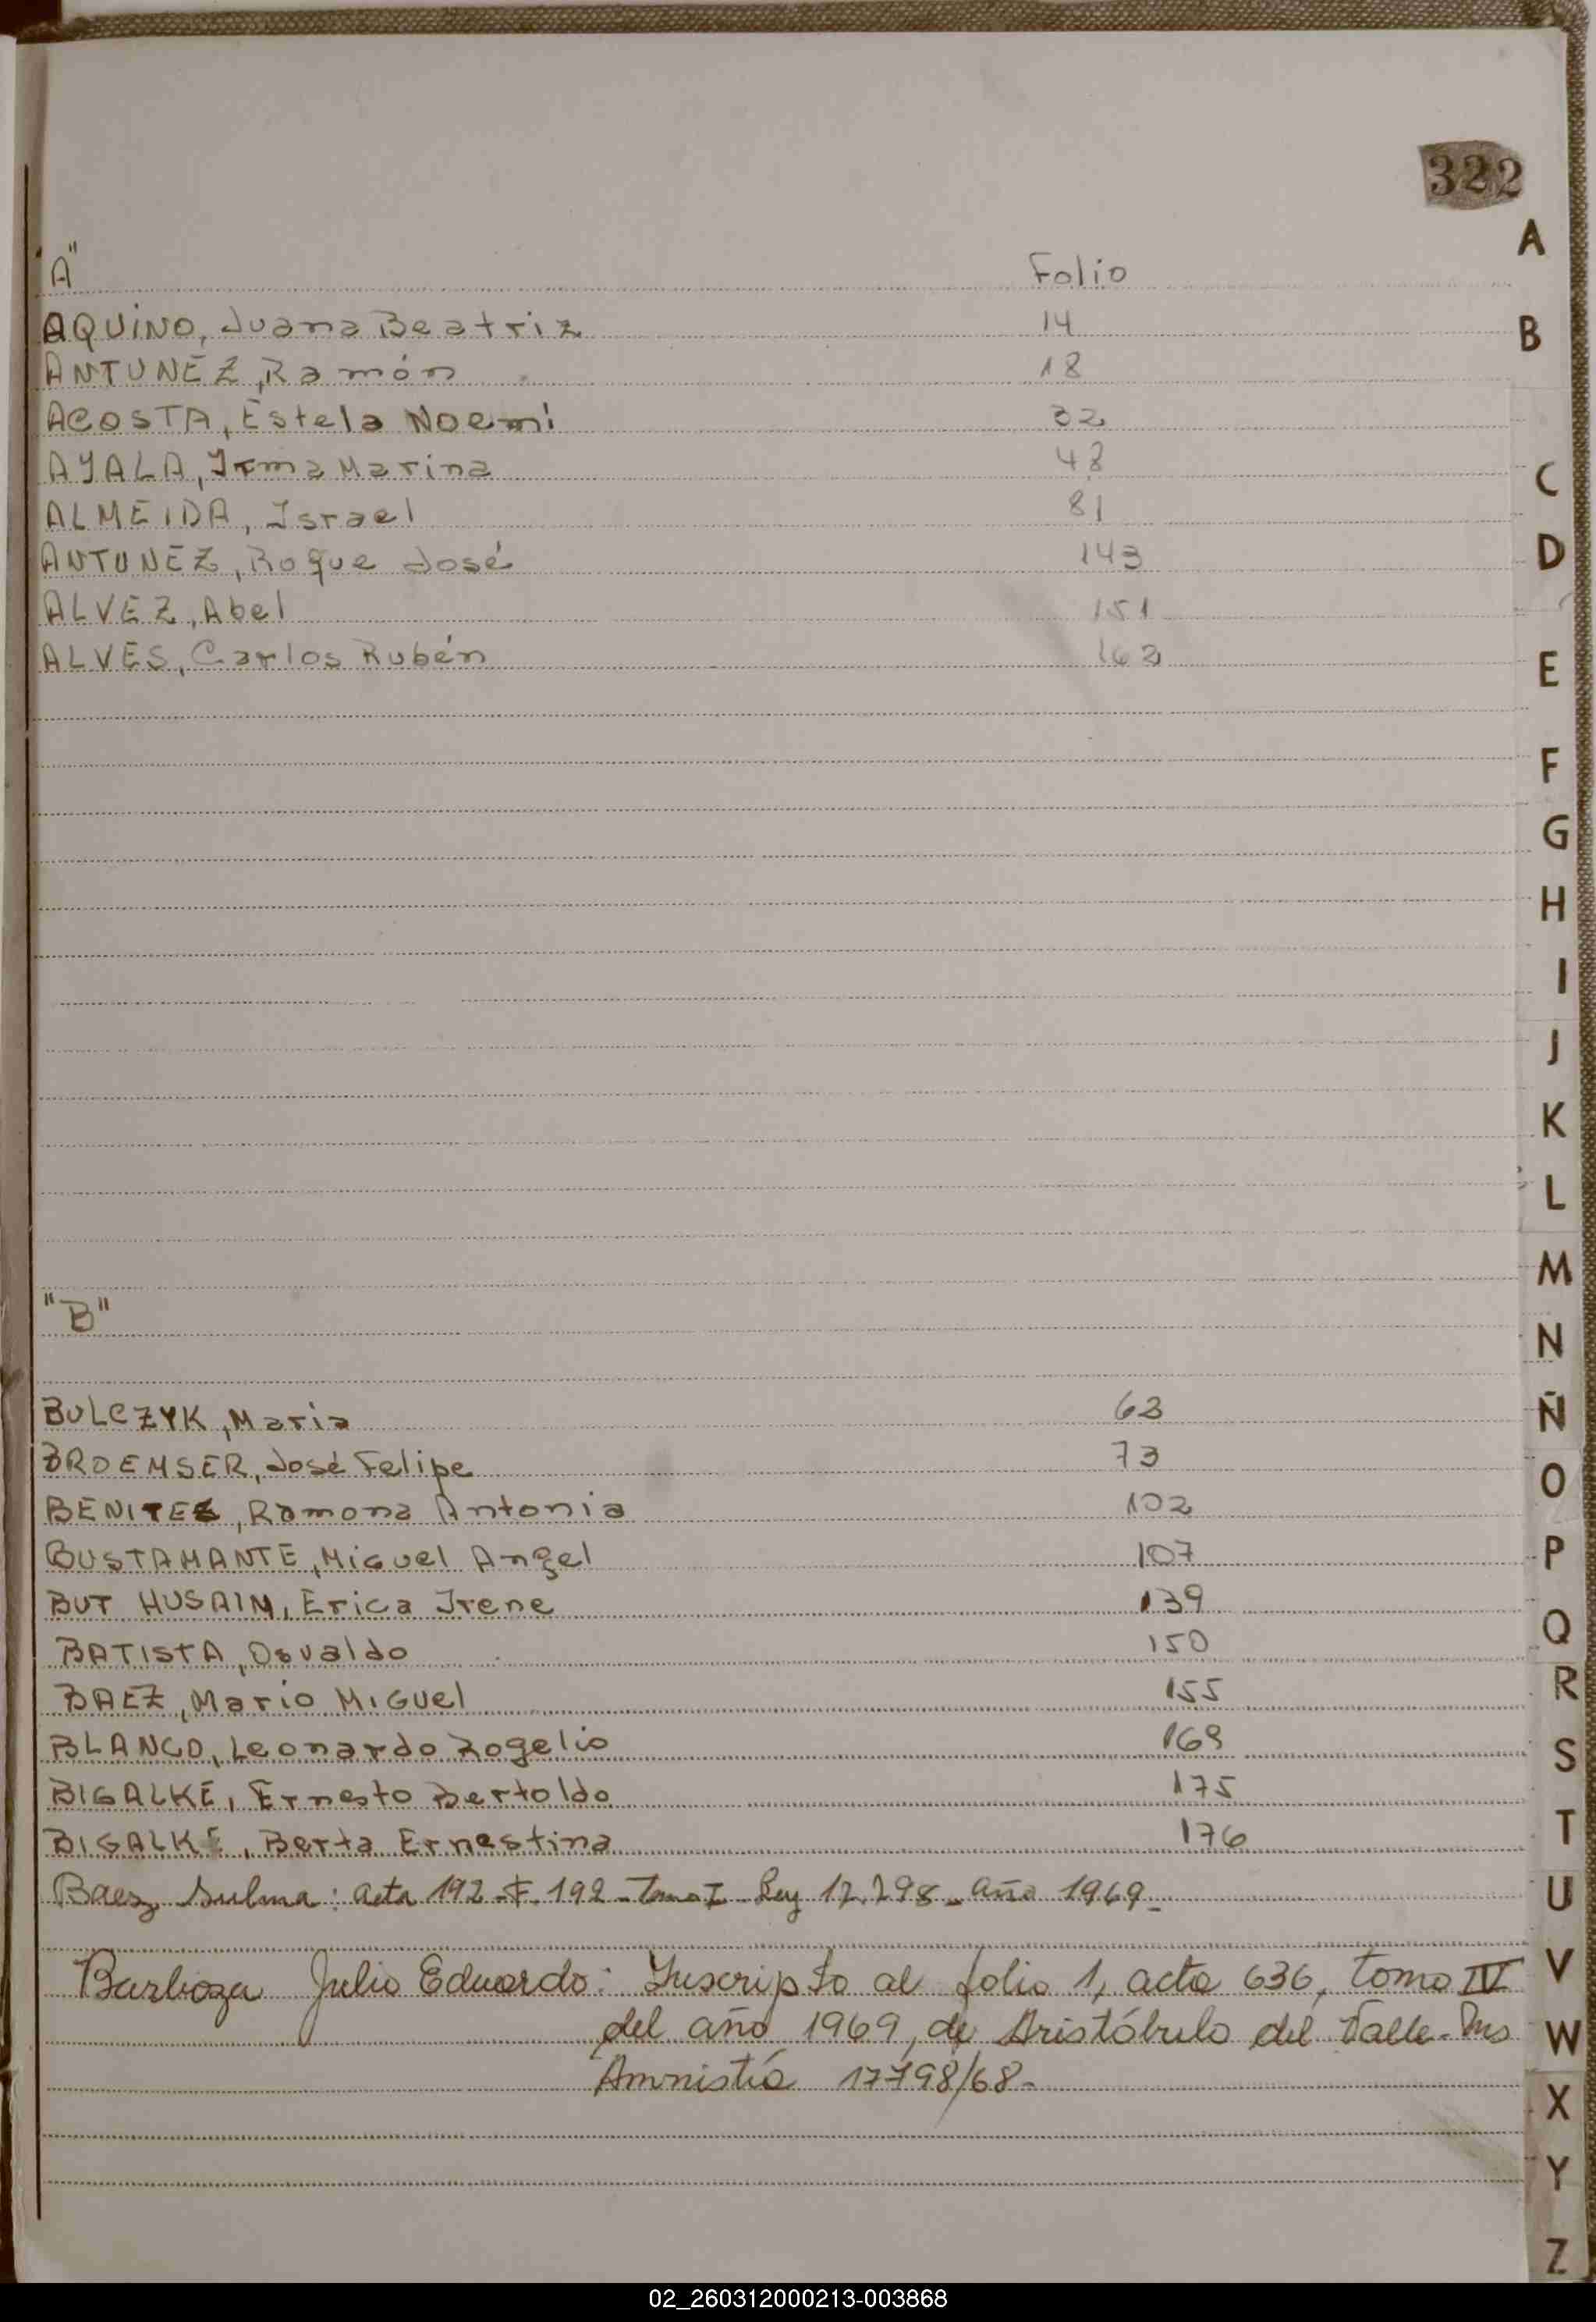 322
"A" Folio
AQUINO, Juana Beatriz 14
ANTUNEZ, Ramón 18
ACOSTA, Estela Noemí 32
AYALA, Irma Marina 48
ALMEIDA, Israel 81
ANTUNEZ, Roque José 143
ALVEZ, Abel 151
ALVES, Carlos Rubén 162
"B"
BULCZYK, Maria 63
BROEMSER, José Felipe 73
BENITEZ, Ramona Antonia 102
BUSTAMANTE, Miguel Angel 107
BUT HUSAIN, Erica Irene 139
BATISTA, Osvaldo 150
BAEZ, Mario Miguel 155
BLANCO, Leonardo Rogelio 169
BIGALKE, Ernesto Bertoldo 175
BIGALKE, Berta Ernestina 176
Baez Sulma: acta 192-F. 192-Tomo I- Ley 17.798- año 1969-
Barboza Julio Eduardo: Inscripto al folio 1, acta 636, tomo IV
del año 1969, de Aristóbulo del Valle-
Amnistía 17798/68-
A
B
C
D
E
F
G
H
I
J
K
L
M
N
Ñ
O
P
Q
R
S
T
U
V
W
X
Y
Z
02_260312000213-003868